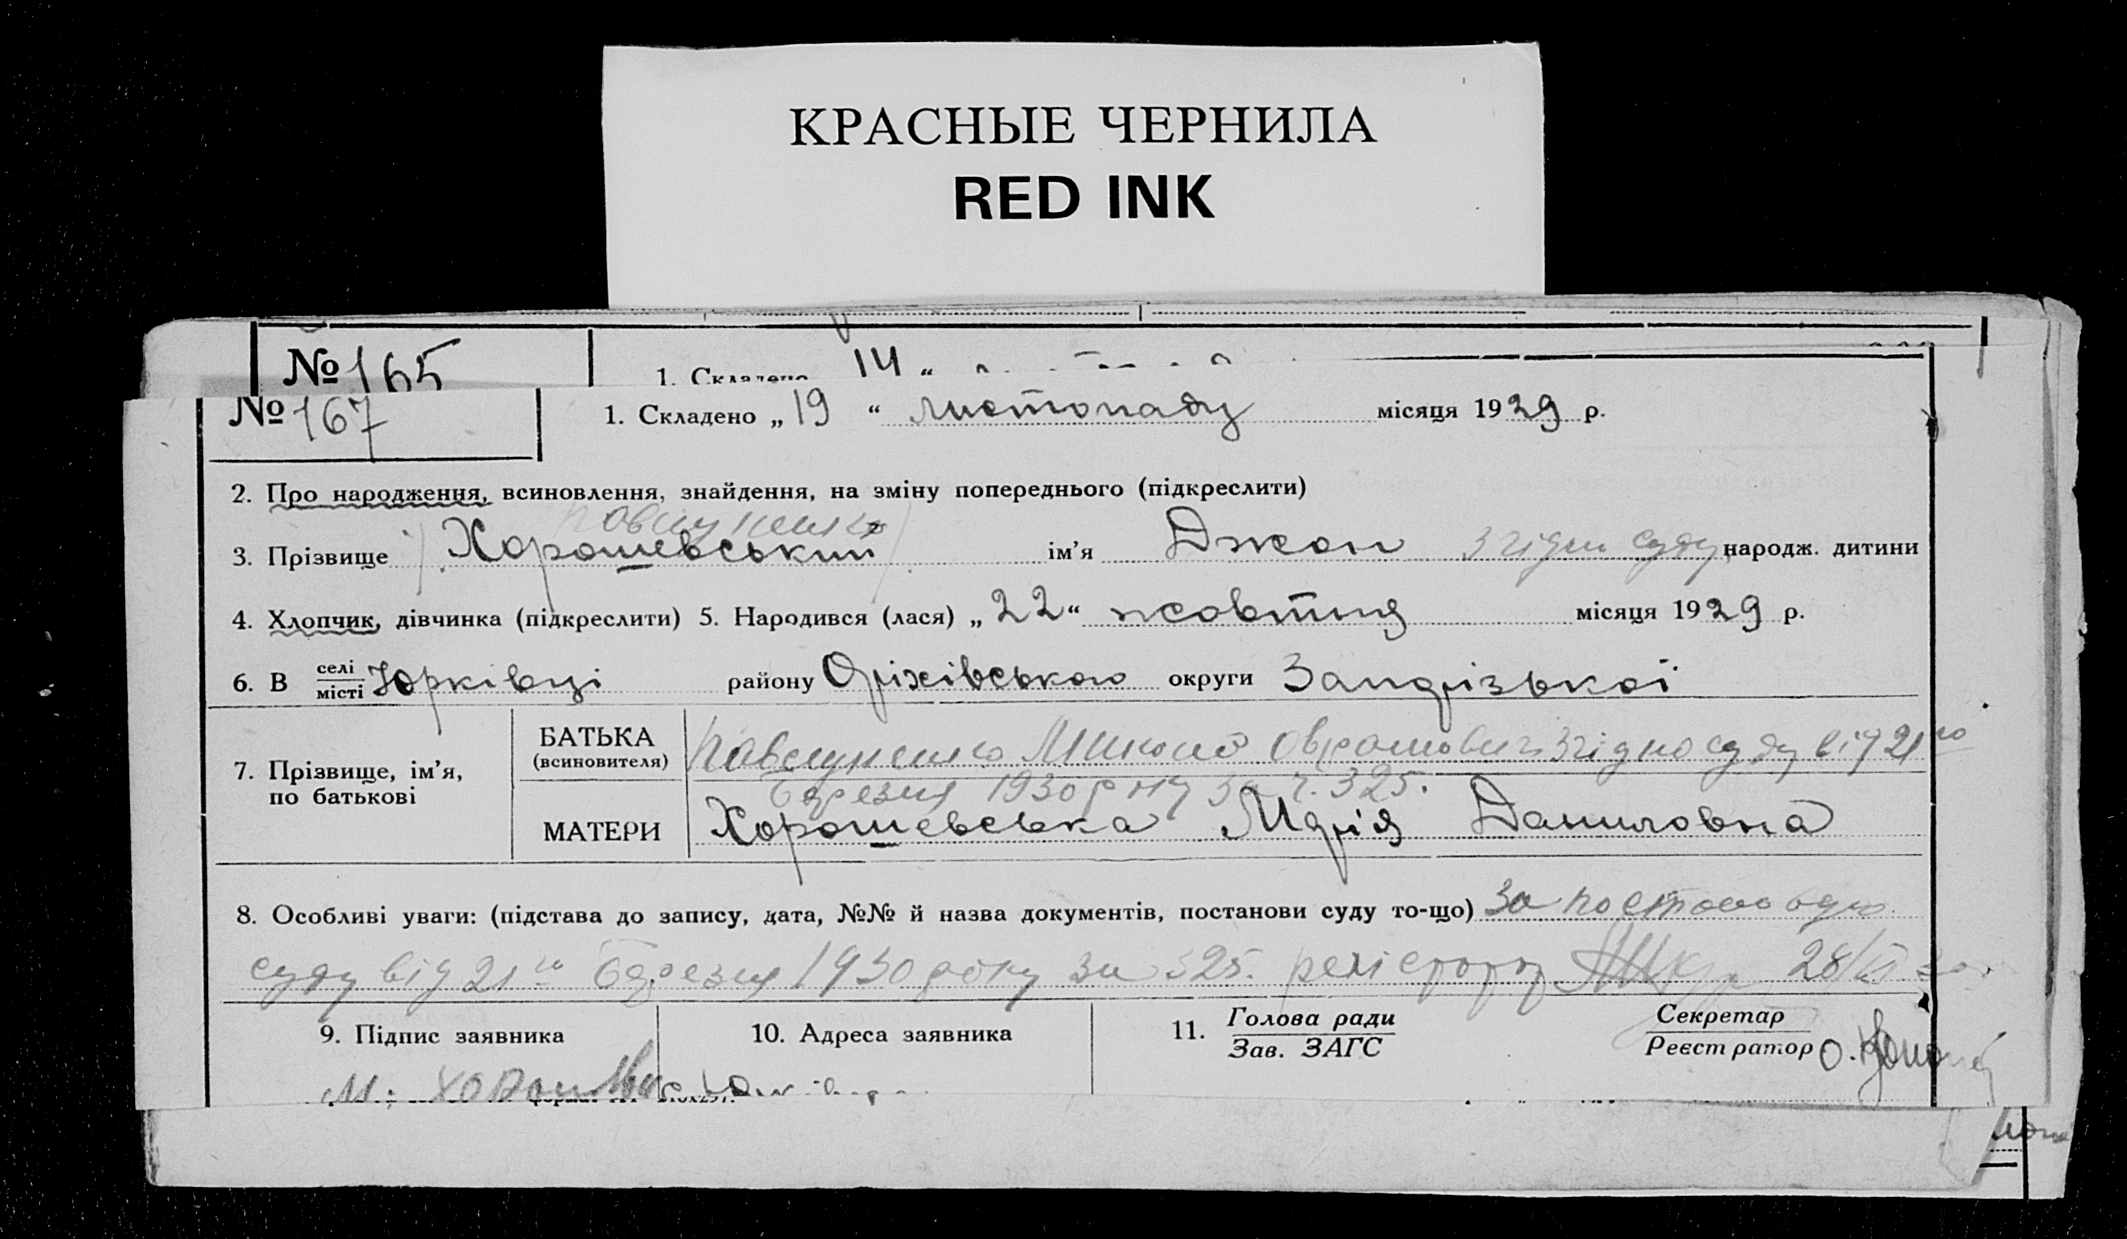 КРАСНЫЕ ЧЕРНИЛА
RED INK
№ 165
1. Складено 14 "
№ 167
1. Складено „ 19 " листопаду місяця 1929 р.
2. Про народження, всиновлення, знайдення, на зміну попереднього (підкреслити)
3. Прізвище Хорошевський ім'я Джон згідно суду народж. дитини
4. Хлопчик, дівчинка (підкреслити) 5. Народився (лася) „ 22 " жовтня місяця 1929 р.
6. В селі
місті Юрківці району Оріхівського округи Запорізької
7. Прізвище, ім'я,
по батькові
БАТЬКА
(всиновителя)
Микола згідно суду від 21го
березня 1930 року за ч. 325.
МАТЕРИ Хорошевська Марія Даниловна
8. Особливі уваги: (підстава до запису, дата, №№ й назва документів, постанови суду то-що) За постановою
суду від 21го березня 1930 року за 325.
9. Підпис заявника
10. Адреса заявника
11. Голова ради
Зав. ЗАГС
Секретар
Реєстратор